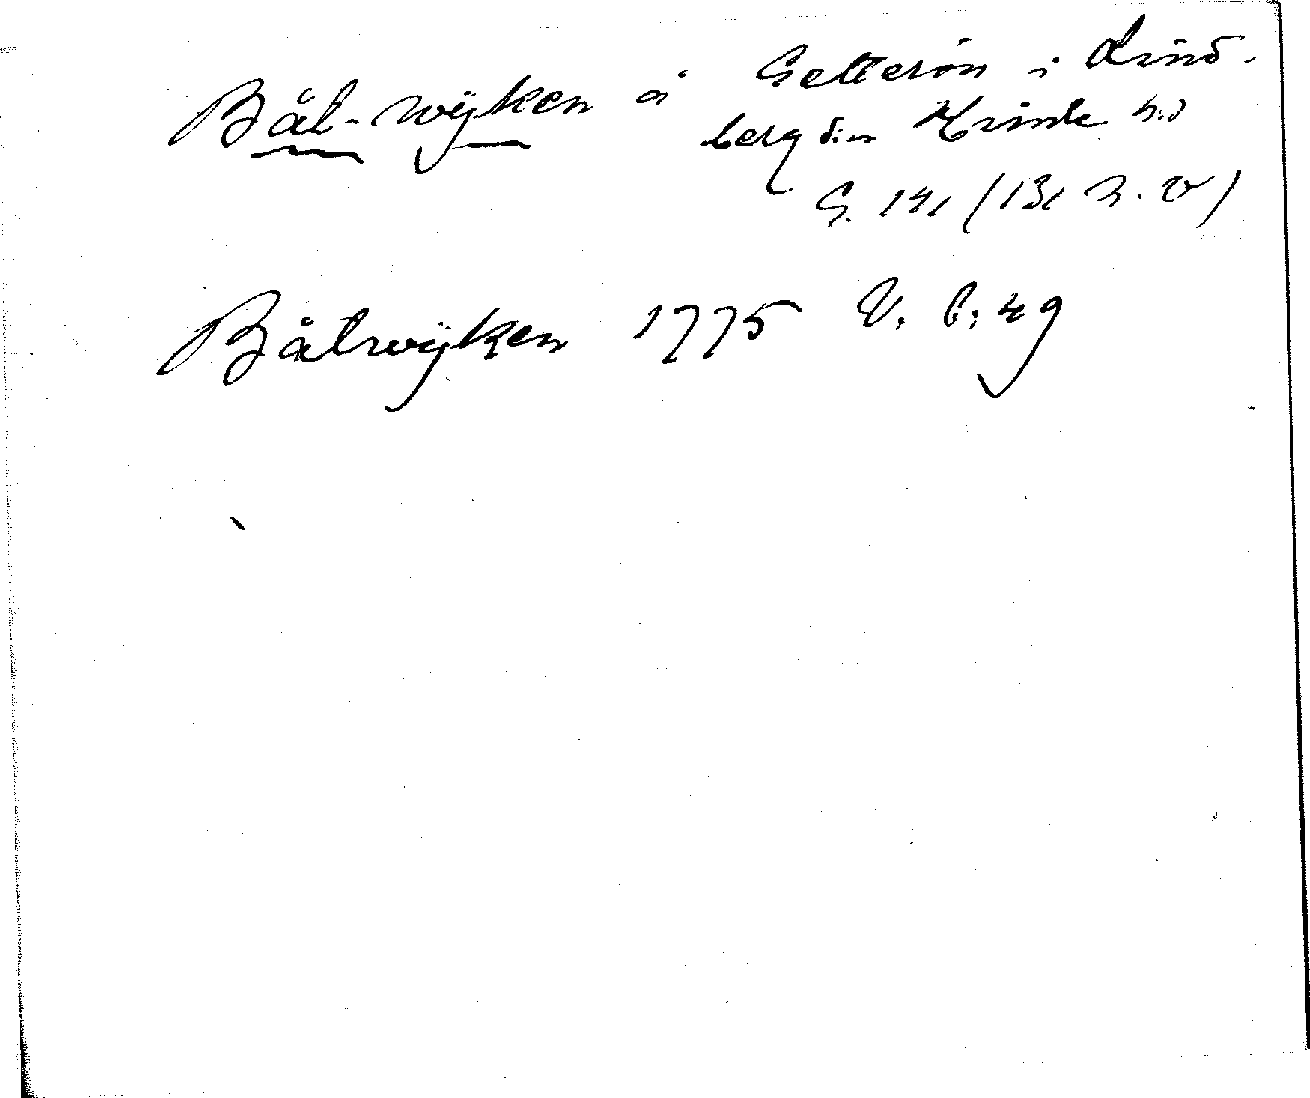 Båt-wÿken å Getterön i Lind-
berg s:n Himle h.d
G. 141 (131 n. v)
Båtwÿken 1775 V. b; 49